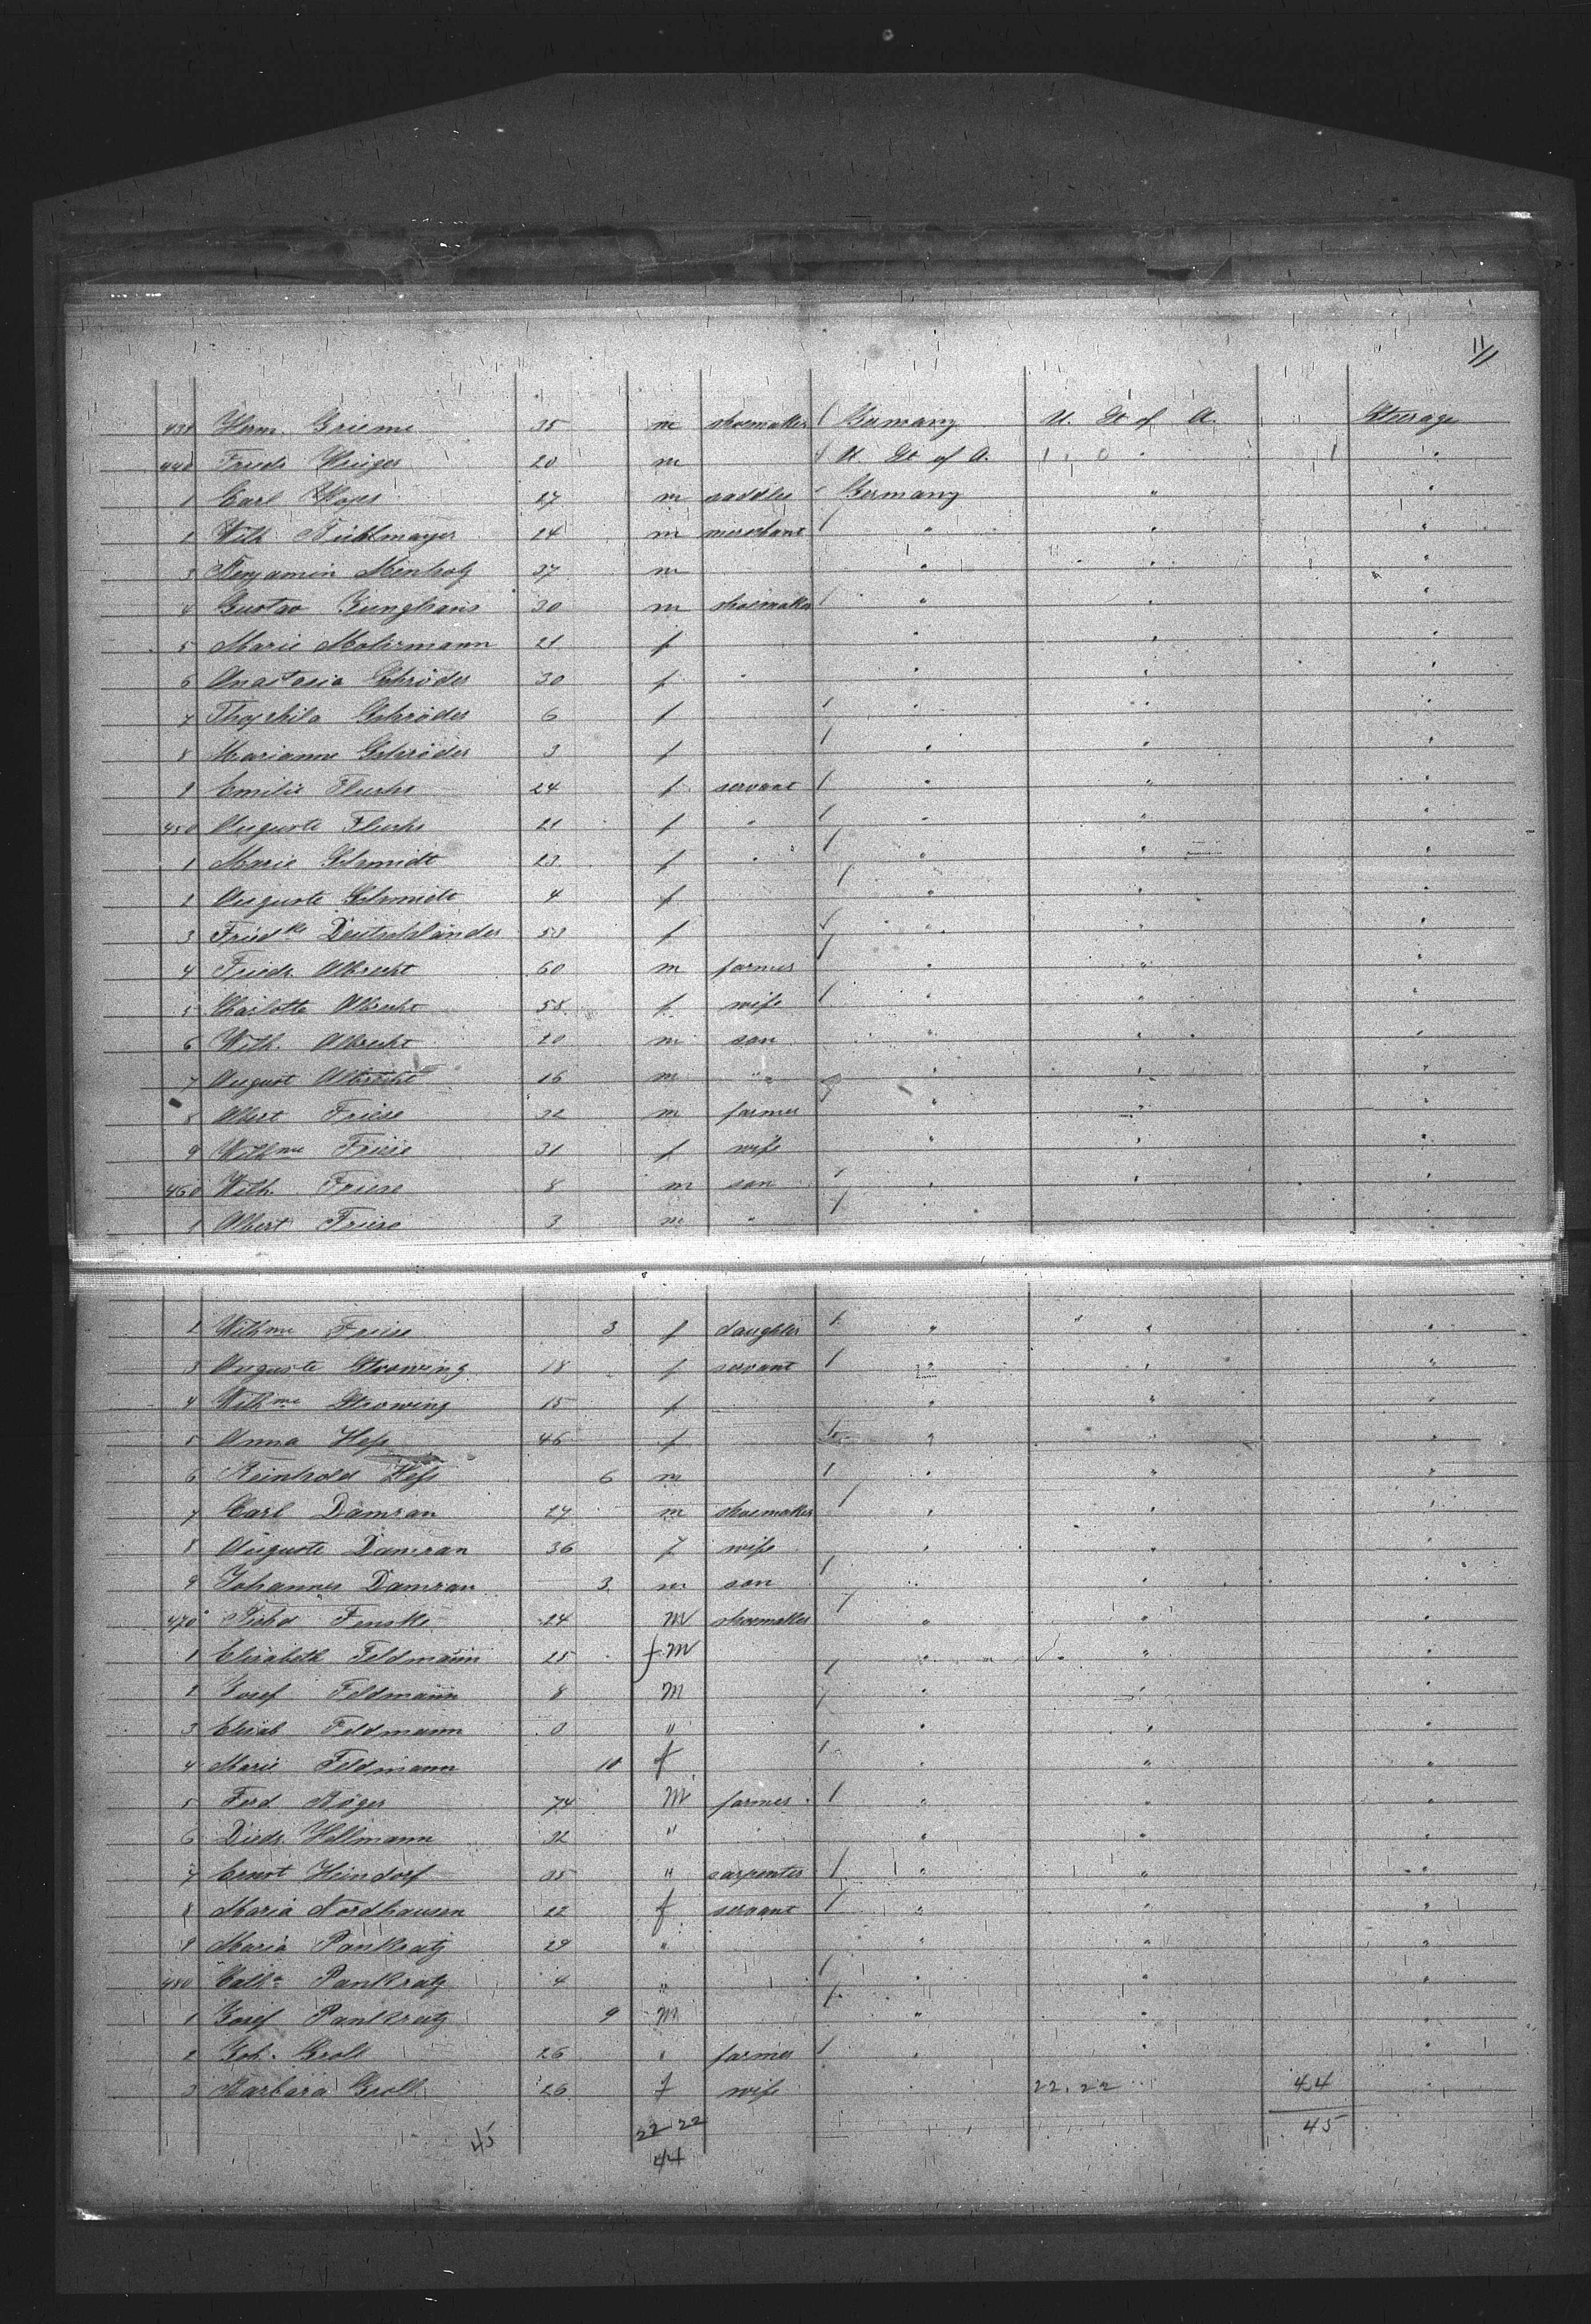 11/
439 Herm. Grieme 35 m shoemaker Germany U. St of A. Steerage
440 Friedr. 20 m U. St of A. 1 0 " 1 "
1 Carl 27 m saddler Germany " "
2 Wilh. 24 m merchant " " "
3 Benjamin Meinholz 37 m " " "
4 Gustav Junghans 30 m shoemaker " " "
5 Marie Mohrmann 21 f " " "
6 Anastasia Schröder 30 f " " " "
7 Schröder 6 f " " "
8 Marianne Schröder 3 f " " "
9 Emilie 24 f servant " " "
450 Auguste 21 f " " " "
1 Marie Schmidt 23 f " " " "
2 Auguste Schmidt 4 f " " "
3 Fried ke Deutschländer 53 f " " "
4 Friedr. Albrecht 60 m farmer " " "
5 Charlotte Albrecht 55 f wife " " "
6 Wilh. Albrecht 20 m son " " "
7 August Albrecht 16 m " " " "
8 Albert Friese 32 m farmer " " "
9 Wilh me Friese 31 f wife " " "
460 Wilh. Friese 8 m son " " "
1 Albert Friese 3 m " "
2 Wilh me Friese 3 f daughter " " "
3 Auguste Strowing 18 f servant " " "
4 Wilh me Strowing 15 f " " "
5 Anna Heß 46 f " " "
6 Reinhold Heß 6 m " " "
7 Carl Damran 27 m shoemaker " " "
8 Auguste Damran 36 f wife " " "
9 Johannes Damran 3 m son " " "
470 Richd Fenske 24 M shoemaker " " "
1 Elisabeth Feldmann 25 f M " " "
2 Josef Feldmann 8 M " " "
3 Elisab Feldmann 0 " " " "
4 Marie Feldmann 10 f " " "
5 Ferd. Röger 74 M farmer " " "
6 Diedr. Hellmann 32 " " " "
7 Ernst Heindorf 35 " carpenter " " "
8 Maria Nordhausen 22 f servant " " "
9 Maria Pankratz 29 " " "
480 Cath a Pankratz 4 " " " "
1 Josef Pankratz 9 M " " "
2 Joh. Groll 26 " farmer " " "
3 Barbara Groll 26 f wife 22. 22 44 "
45 22 22 45
44